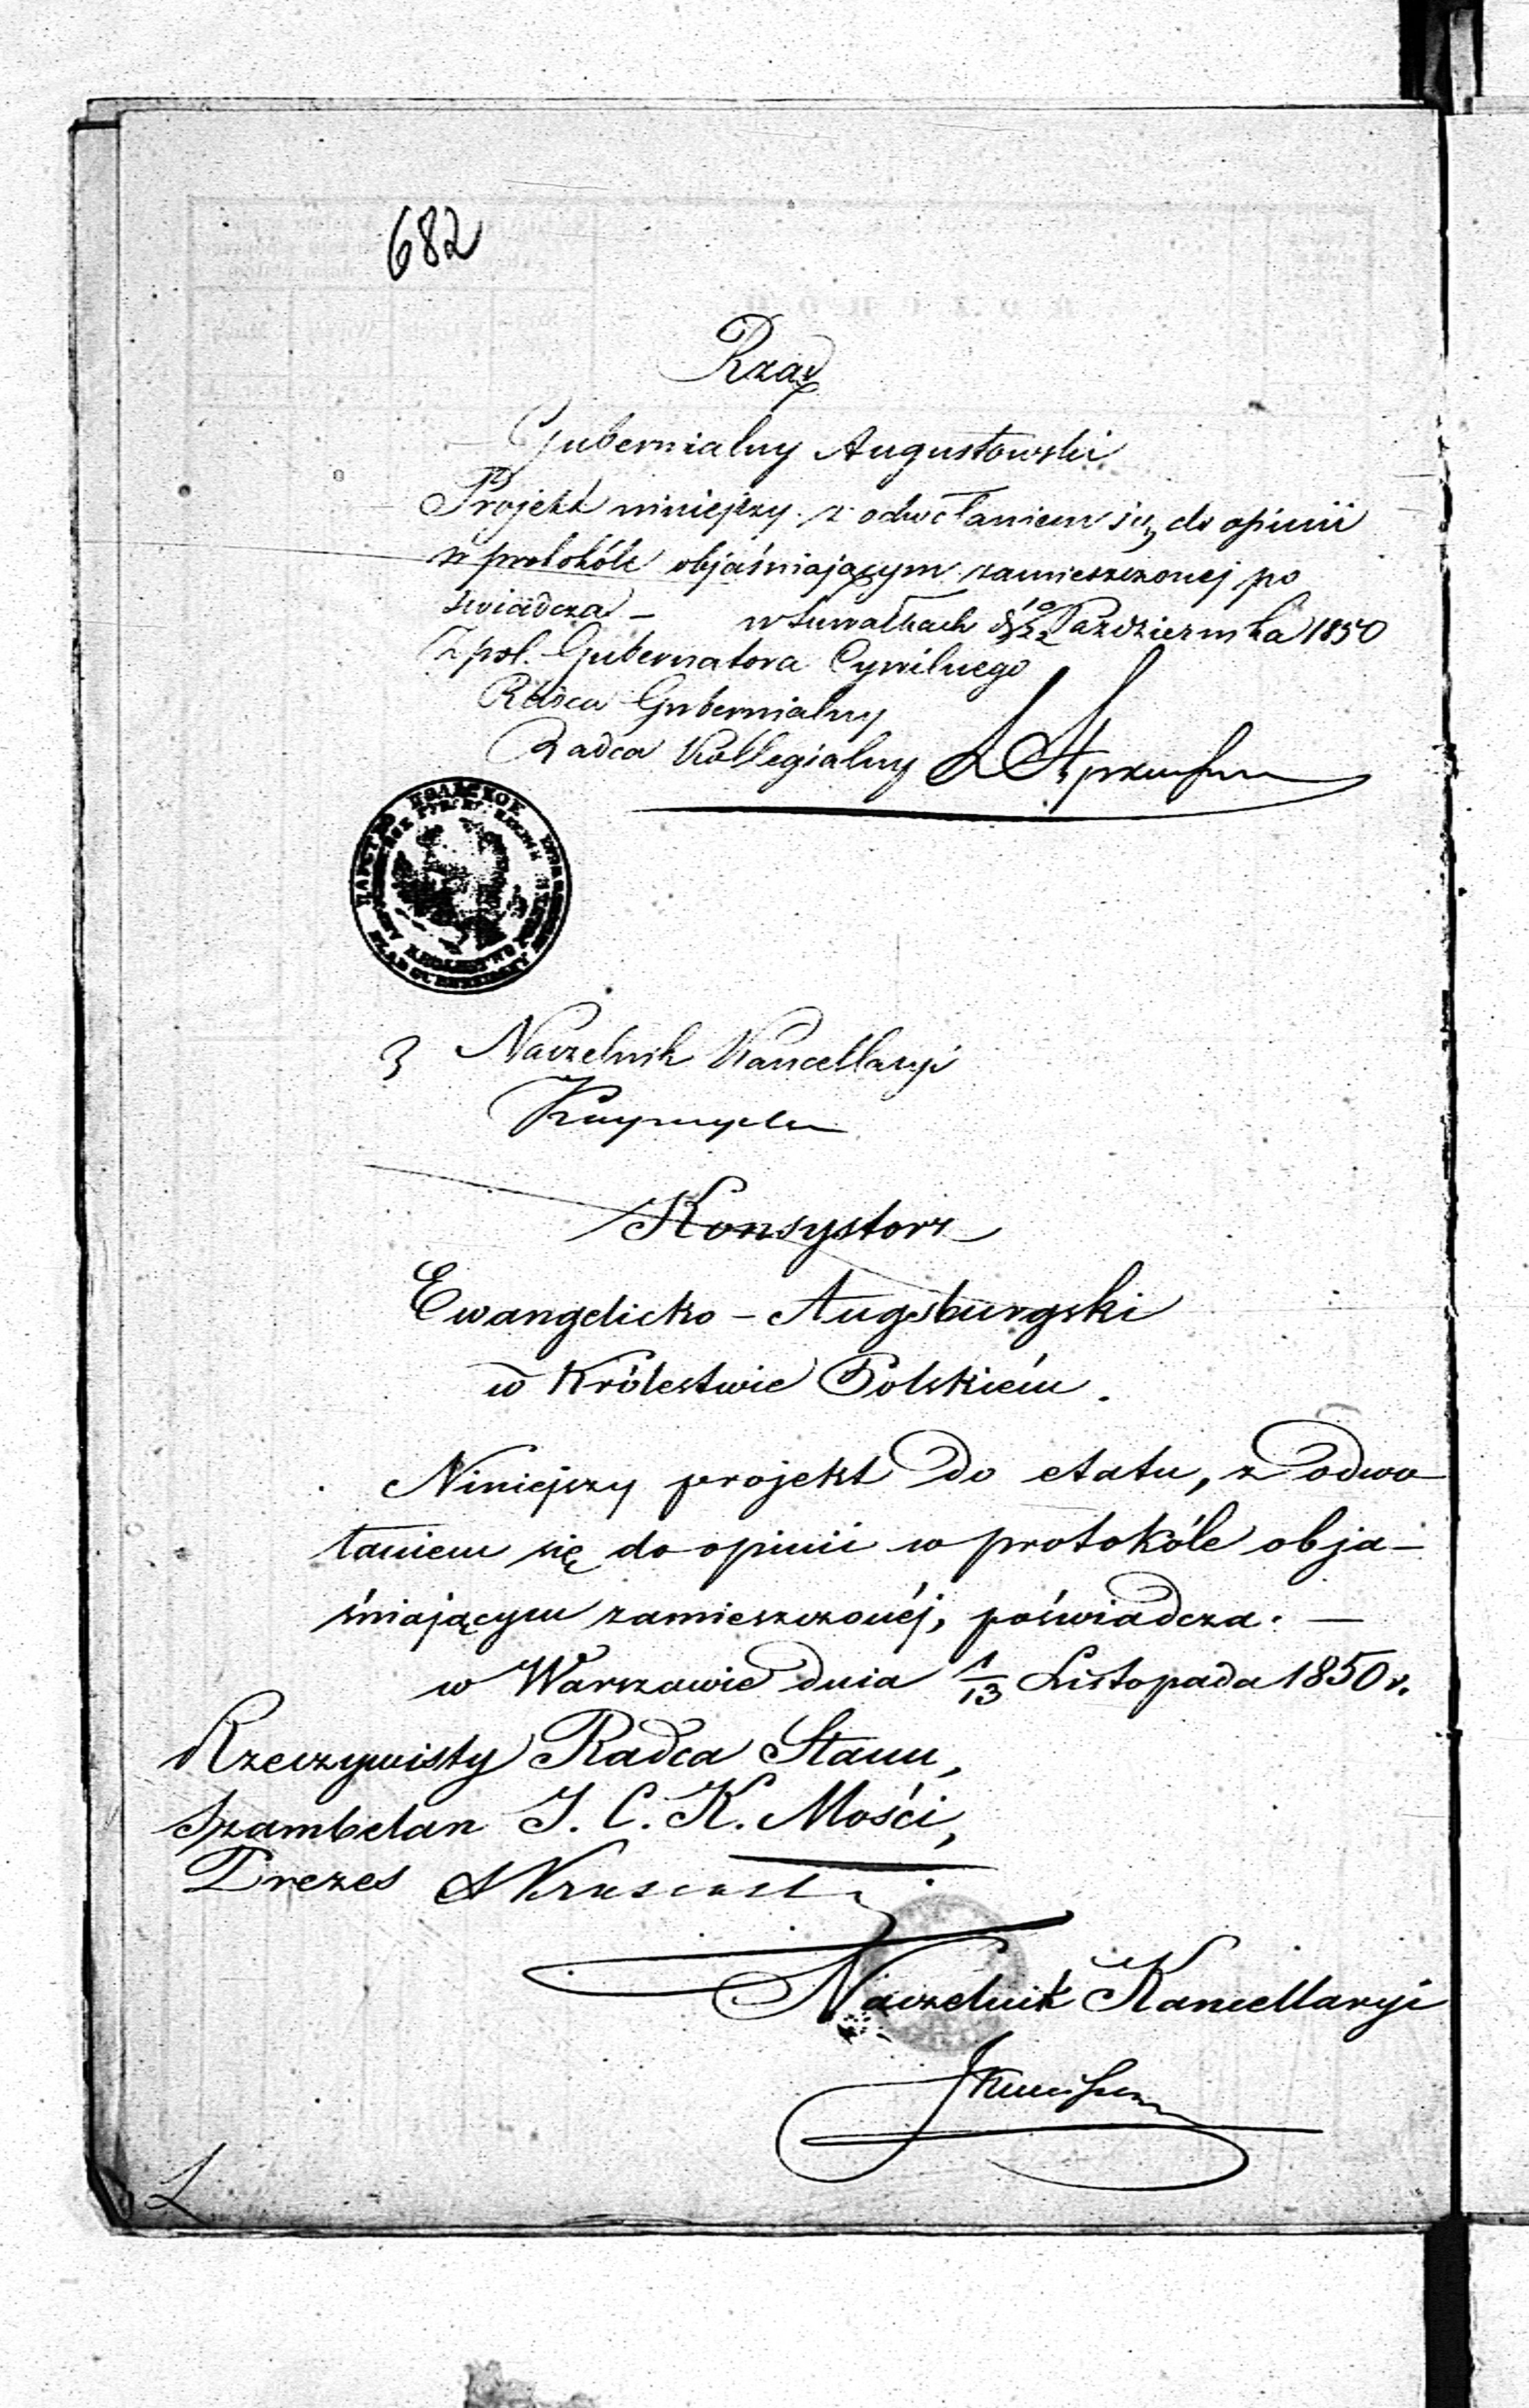 682
Rząd
Gubernialny Augustowski
Projekt niniejszy z odwołaniem się do opinii
w protokóle objaśniającym zamieszczonej po
świadcza –
w Suwałkach d 10/22 Października 1850
Z pol. Gubernatora Cywilnego
Radca Gubernialny
Radca Kollegialny
Naczelnik Kancellaryi
Konsystorz
Ewangelicko – Augsburgski
w Królestwie Polskiém.
Niniejszy projekt do etatu, z odwo
łaniem się do opinii w protokóle obja–
śniającym zamieszczonéj, poświadcza. —
w Warszawie dnia 1/13 Listopada 1850 r.
Rzeczywisty Radca Stanu,
Szambelan J. C. K. Mości,
Prezes
Naczelnik Kancellaryi